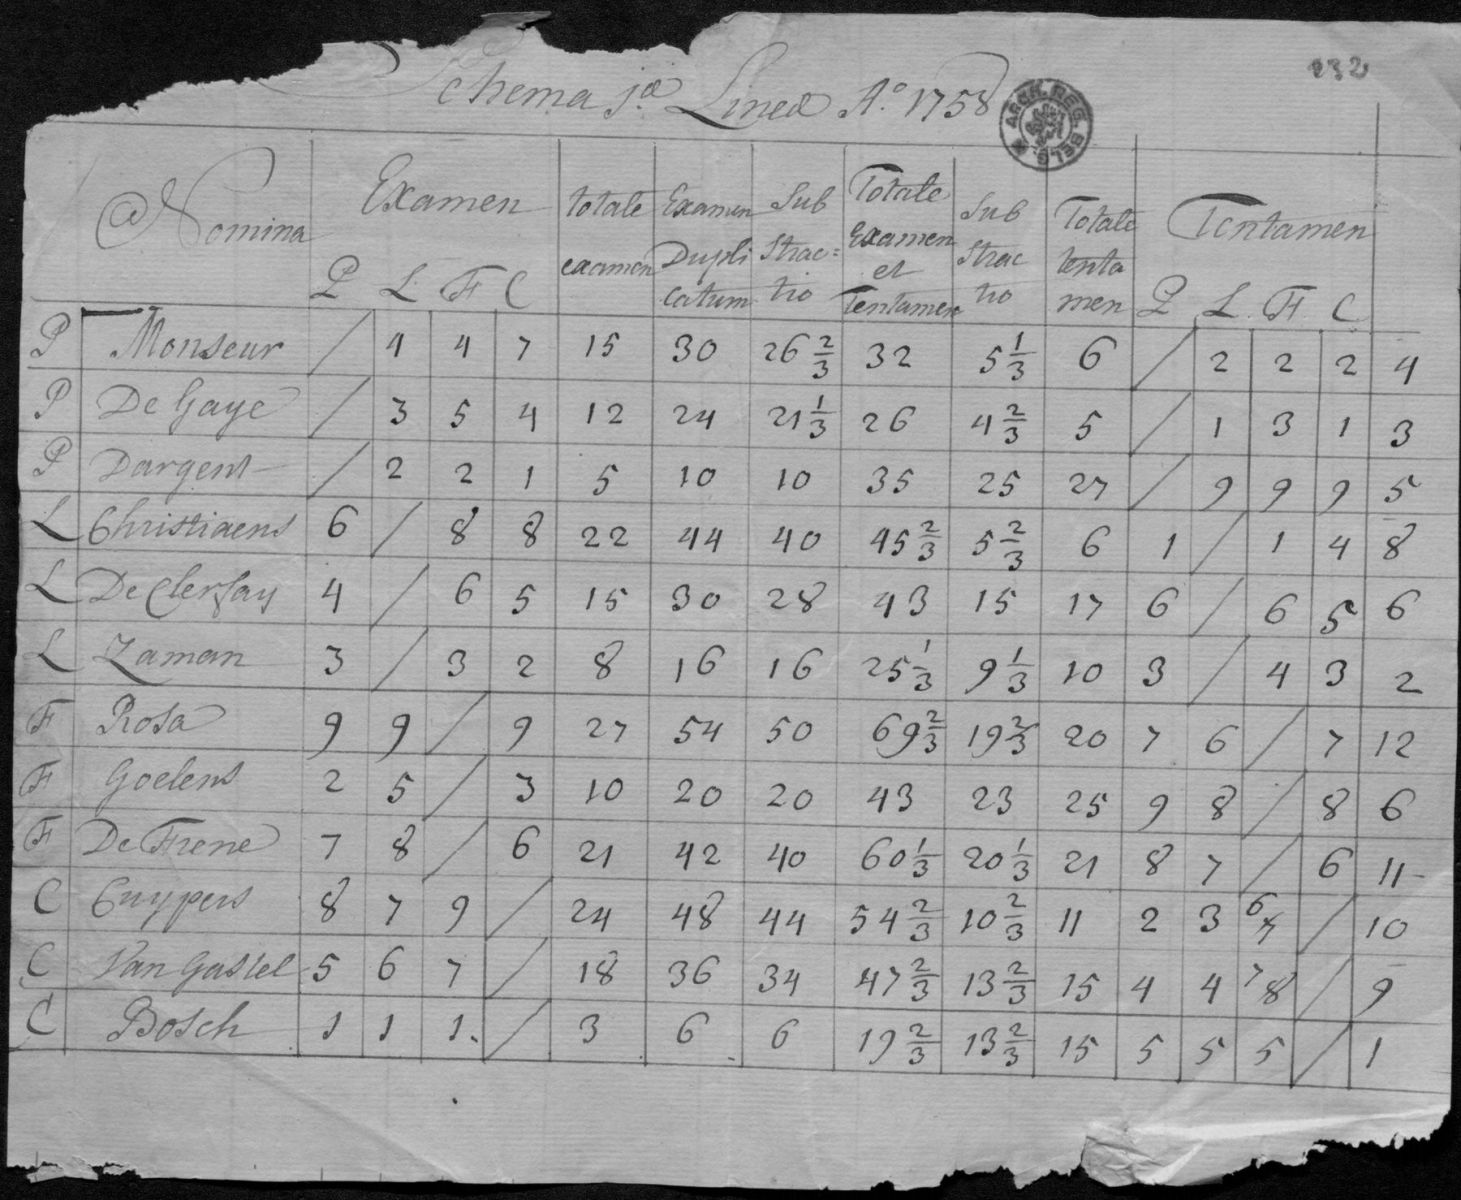 132
Schema 1.æ Lineæ A.° 1758
ARCH. REG. BELG.
Nomina Examen totale examen Examen Dupli catum Sub strac= tio Totale Examen et Tentamen Sub strac tio Totale tenta men Tentamen
P L F C P L F C
P Monseur / 4 4 7 15 30 26 2/3 32 5 1/3 6 / 2 2 2 4
P De Gaye / 3 5 4 12 24 21 1/3 26 4 2/3 5 / 1 3 1 3
P Dargent / 2 2 1 5 10 10 35 25 27 / 9 9 9 5
L Christiaens 6 / 8 8 22 44 40 45 2/3 5 2/3 6 1 / 1 4 8
L De Clerfay 4 / 6 5 15 30 28 43 15 17 6 / 6 5 6
L Zaman 3 / 3 2 8 16 16 25 1/3 9 1/3 10 3 / 4 3 2
F Rosa 9 9 / 9 27 54 50 69 2/3 19 2/3 20 7 6 / 7 12
F Goelens 2 5 / 3 10 20 20 43 23 25 9 8 / 8 6
F De Frene 7 8 / 6 21 42 40 60 1/3 20 1/3 21 8 7 / 6 11
C Cuypers 8 7 9 / 24 48 44 54 2/3 10 2/3 11 2 3 6 7 / 10
C Van Gastel 5 6 7 / 18 36 34 47 2/3 13 2/3 15 4 4 7 8 / 9
C Bosch 1 1 1. / 3 6 6 19 2/3 13 2/3 15 5 5 5 / 1